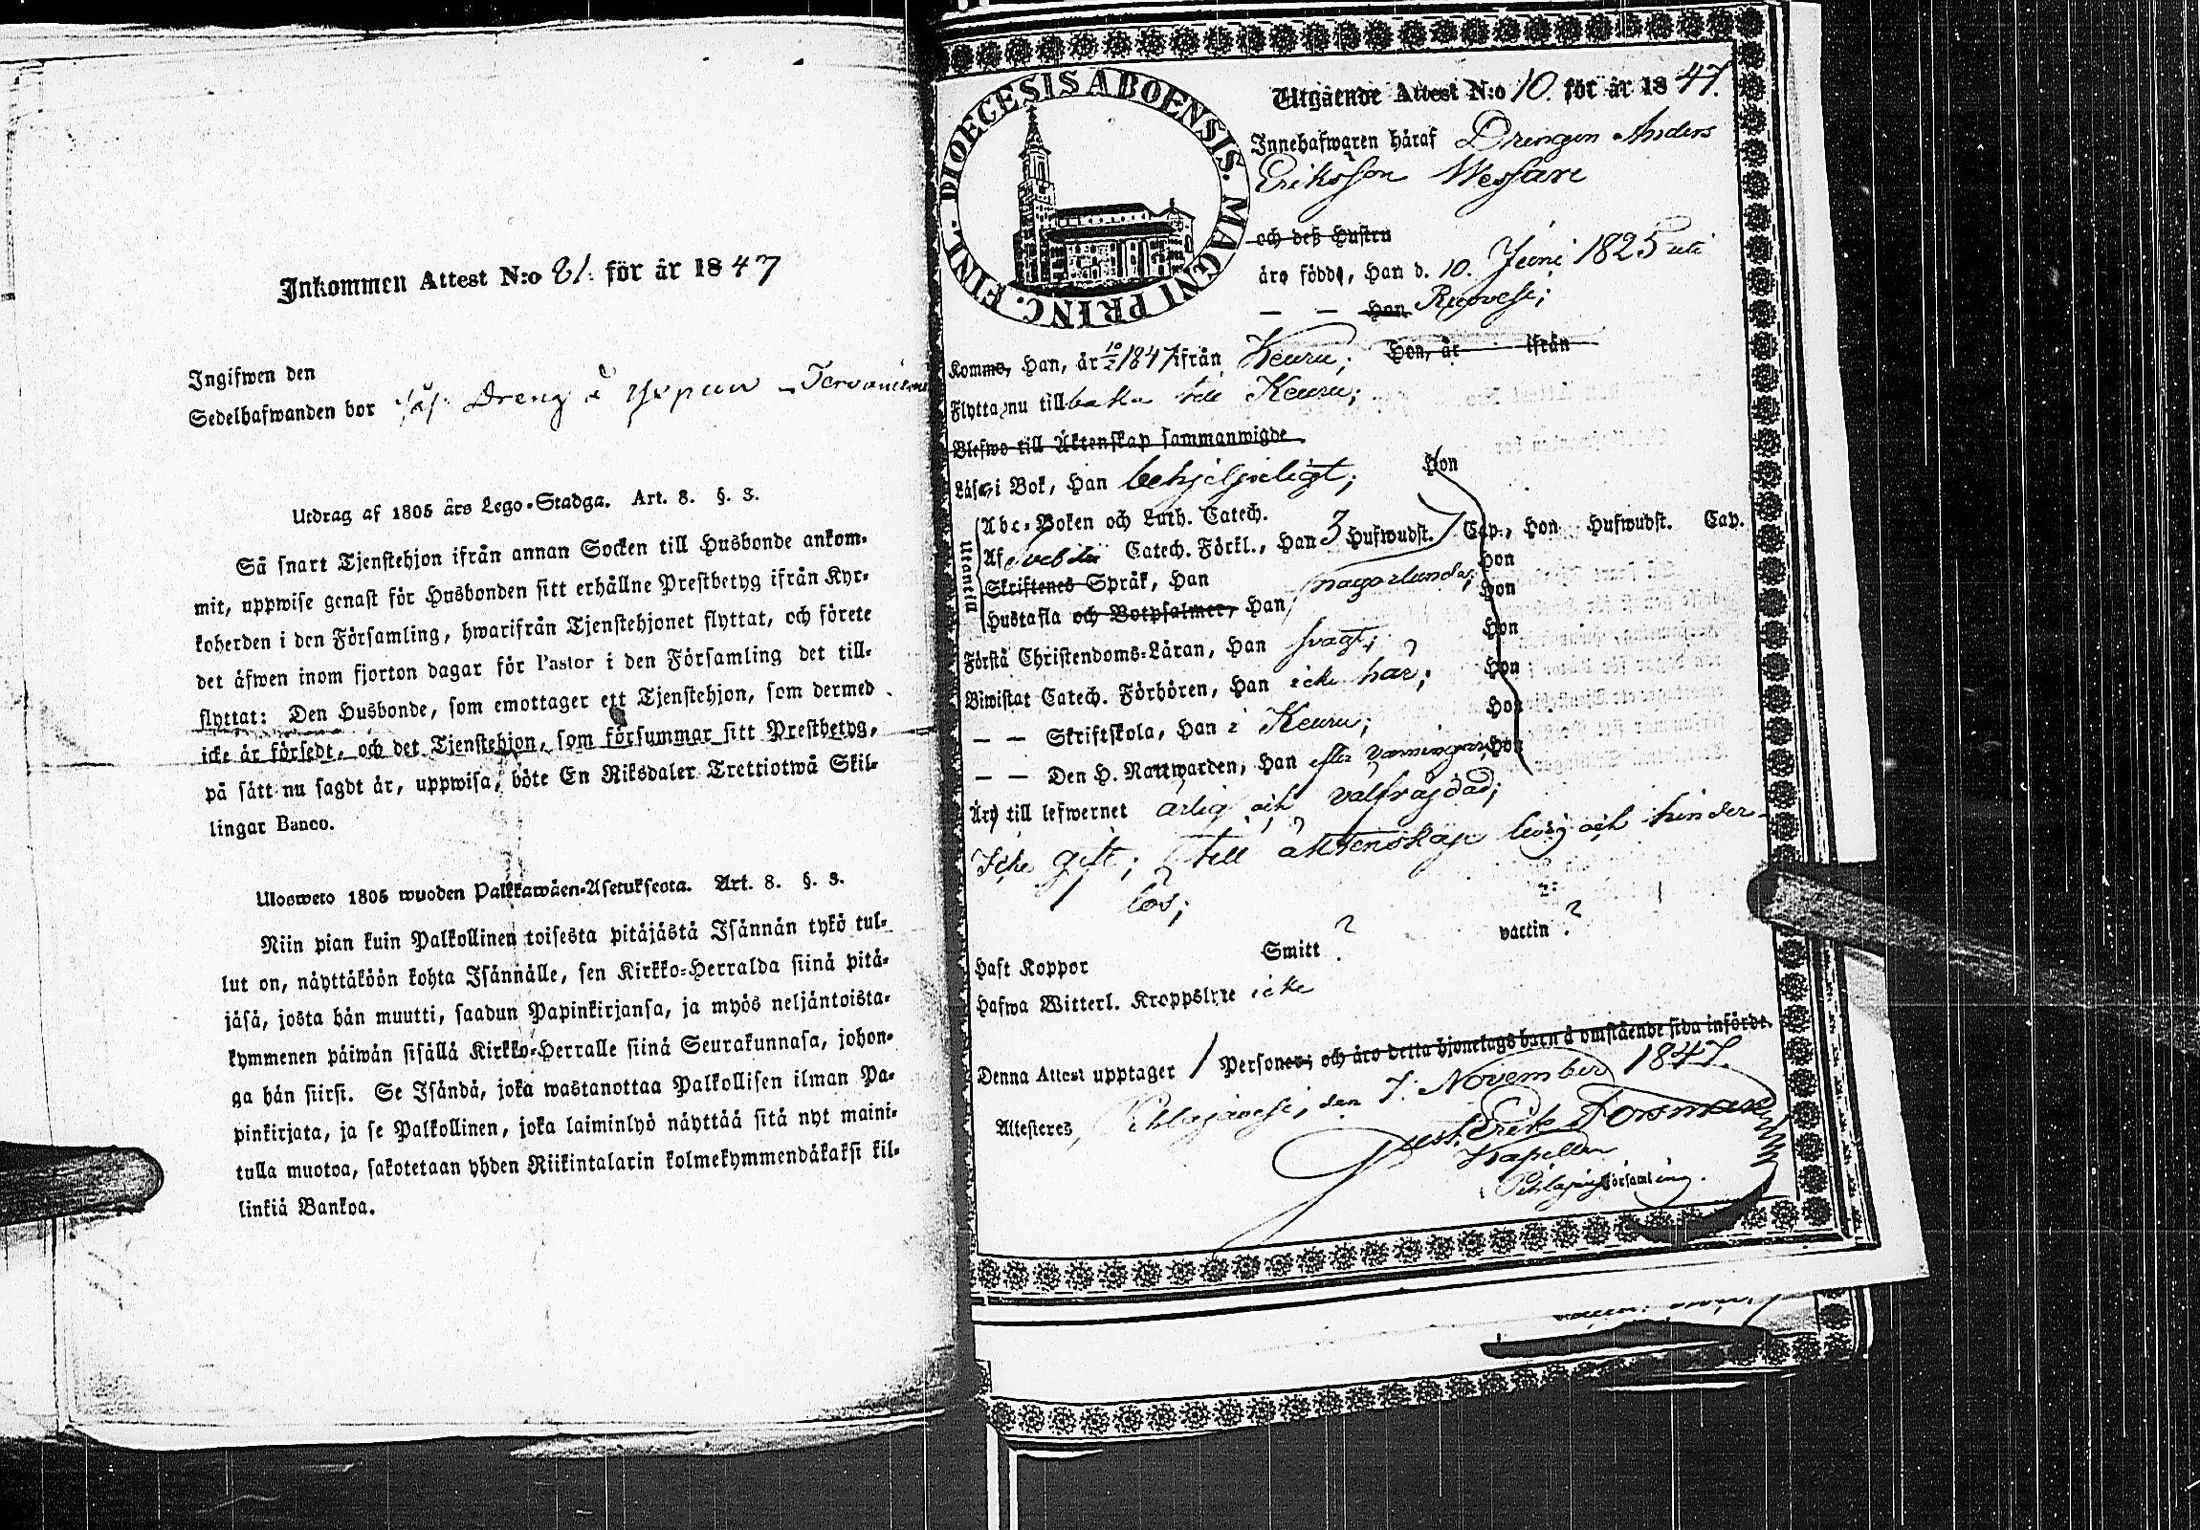 Inkommen Attest N:o 81. för år 1847
Ingifwen den
Sedelhafwanden bor Dreng
Utdrag af 1805 års Lego-Stadga. Art. 8. §. 3.
Så snart Tjenstehjon ifrån annan Socken till Husbonde ankom-
mit, uppwise genast för Husbonden sitt erhållne Prestbetyg ifrån Kyr-
koherden i den Församling, hwarifrån Tjenstehjonet flyttat, och förete
det äfwen inom fjorton dagar för Pastor i den Församling det till-
flyttat: Den Husbonde, som emottager ett Tjenstehjon, som dermed
icke är försedt, och det Tjenstehjon, som försummar sitt Prestbetyg,
på sätt nu sagdt är, uppwisa, böte En Riksdaler Trettiotwå Skil-
lingar Banco.
Ulosweto 1805 wuoden Palkkawäen-Asetuksesta. Art. 8. §. 3.
Niin pian kuin Palkollinen toisesta pitäjästä Isännän tykö tul-
lut on, näyttäköön kohta Isännälle, sen Kirkko-Herralda siinä pitä-
jäsä, josta hän muutti, saadun Papinkirjansa, ja myös neljäntoista-
kymmenen päiwän sisällä Kirkko-Herralle siinä Seurakunnasa, johon-
ga hän siirsi. Se Isändä, joka wastanottaa Palkollisen ilman Pa-
pinkirjata, ja se Palkollinen, joka laiminlyö näyttää sitä nyt maini-
tulla muotoa, sakotetaan yhden Riikintalarin kolmekymmendäkaksi kil-
linkiä Bankoa.
DIOECESIS ABOENSIS. MAGNI PRINC. FINL.
Utgående Attest N:o 10. för år 1847.
Innehafwaren häraf Drengen Anders
Eriksson Wessari
och deß Hustru
äro födde, Han d. 10. Juni 1825 uti
— — Hon Ruovesi;
Komme, Han, år 1847 ifrån Keuru; Hon, år ifrån
Flytta nu till baka till Keuru;
Blefwo till Äktenskap sammanwigde
Läsa i Bok, Han behjelpeligt; Hon
Utantill
Abc-Boken och Luth. Catech.
Af Svebilii Catech. Förkl., Han 3 Hufwudst. 1 Cap., Hon Hufwudst. Cap.
Skriftenes Språk, Han Hon
Hustafla och Botpsalmer, Han någorlunda; Hon
Förstå Christendoms-Läran, Han svagt; Hon
Biwistat Catech. Förhören, Han icke här; Hon
— — Skriftskola, Han i Keuru; Hon
— — Den H. Nattwarden, Han efter Hon
Äro till lefwernet ärlig och välfrägdad;
Icke gift; till äktenskap ledig och hinder-
lös;
Haft Koppor Smitt ? vaccin ?
Hafwa Witterl. Kroppslyte icke
Denna Attest upptager 1 Personer; och äro detta hjonelags barn å omstående sida införde.
Attesteres, Pihlajavesi, den 7. November 1847.
Erik Forsman
Kapellan
församling.